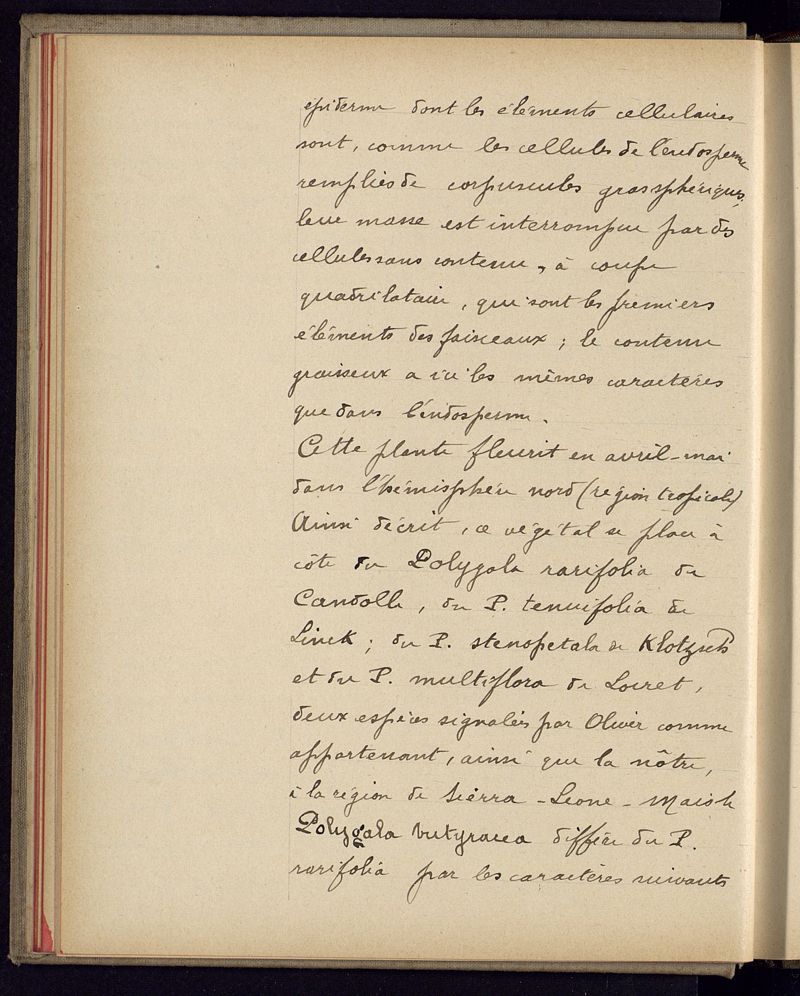 épiderme dont les éléments cellulaires
sont, comme les cellules de l'endosperme
remplies de corpuscules gras sphériques,
leur masse est interrompue par des
cellules sans contenu, à coupe
quadrilataire, qui sont les premiers
éléments des faisceaux ; le contenu
graisseux a ici les mêmes caractères
que dans l'endosperme.
Cette plante fleurit en avril-mai
dans l'hémisphère nord (région tropicale)
Ainsi décrit, ce végétal se place à
côté du Polygala rarifolia de
Candolle, du P. tenuifolia de
Linck ; du P. stenopetala de Klotzsch
et du P. multiflora de Loiret,
deux espèces signalées par Oliver comme
appartenant, ainsi que la nôtre,
à la région de Sierra-Leone - Mais le
Polygala butyracea diffère du P.
rarifolia par les caractères suivants